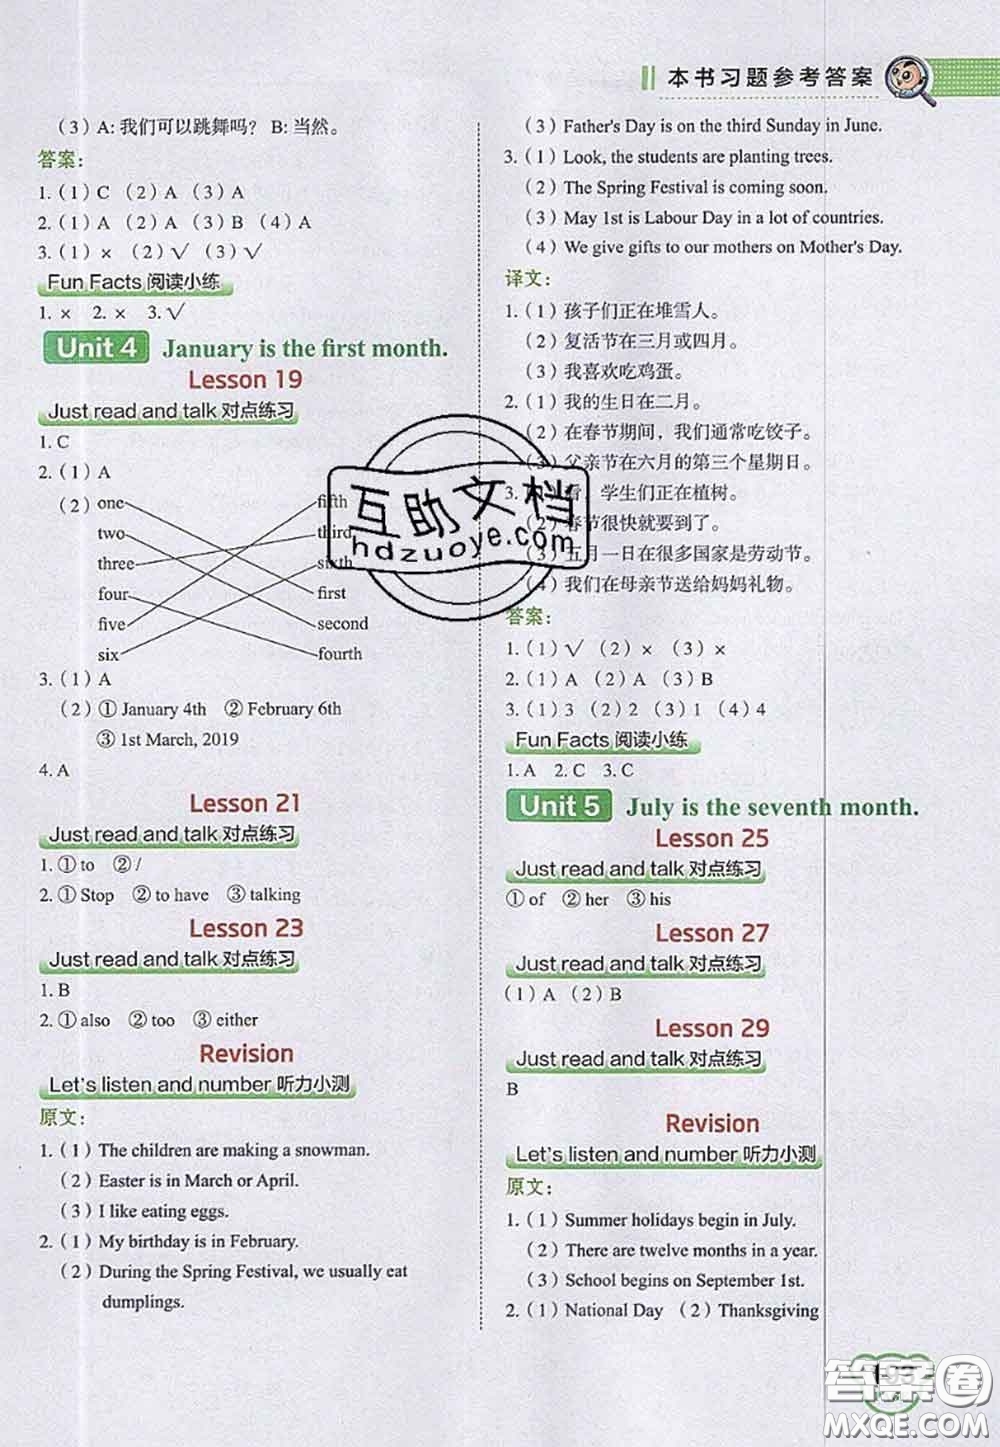 本书习题参考答案
（3）A: 我们可以跳舞吗？ B: 当然。
答案：
1.（1）C （2）A （3）A
2.（1）A （2）A （3）B （4）A
3.（1）× （2）√ （3）√
Fun Facts 阅读小练
1. × 2. × 3. √
Unit 4 January is the first month.
Lesson 19
Just read and talk 对点练习
1. C
2.（1）A
（2）one fifth
two third
three sixth
four first
five second
six fourth
3.（1）A
（2）① January 4th ② February 6th
③ 1st March, 2019
4. A
Lesson 21
Just read and talk 对点练习
1. ① to ② /
2. ① Stop ② to have ③ talking
Lesson 23
Just read and talk 对点练习
1. B
2. ① also ② too ③ either
Revision
Let's listen and number 听力小测
原文：
1.（1）The children are making a snowman.
（2）Easter is in March or April.
（3）I like eating eggs.
2.（1）My birthday is in February.
（2）During the Spring Festival, we usually eat
dumplings.
（3）Father's Day is on the third Sunday in June.
3.（1）Look, the students are planting trees.
（2）The Spring Festival is coming soon.
（3）May 1st is Labour Day in a lot of countries.
（4）We give gifts to our mothers on Mother's Day.
译文：
1.（1）孩子们正在堆雪人。
（2）复活节在三月或四月。
（3）我喜欢吃鸡蛋。
2.（1）我的生日在二月。
（2）在春节期间，我们通常吃饺子。
（3）父亲节在六月的第三个星期日。
3.（1）看，学生们正在植树。
（2）春节很快就要到了。
（3）五月一日在很多国家是劳动节。
（4）我们在母亲节送给妈妈礼物。
答案：
1.（1）√ （2）× （3）×
2.（1）A （2）A （3）B
3.（1）3 （2）2 （3）1 （4）4
Fun Facts 阅读小练
1. A 2. C 3. C
Unit 5 July is the seventh month.
Lesson 25
Just read and talk 对点练习
① of ② her ③ his
Lesson 27
Just read and talk 对点练习
（1）A （2）B
Lesson 29
Just read and talk 对点练习
B
Revision
Let's listen and number 听力小测
原文：
1.（1）Summer holidays begin in July.
（2）There are twelve months in a year.
（3）School begins on September 1st.
2.（1）National Day （2）Thanksgiving
互助文档
hdzuoye.com
答案卷
MXQE.COM